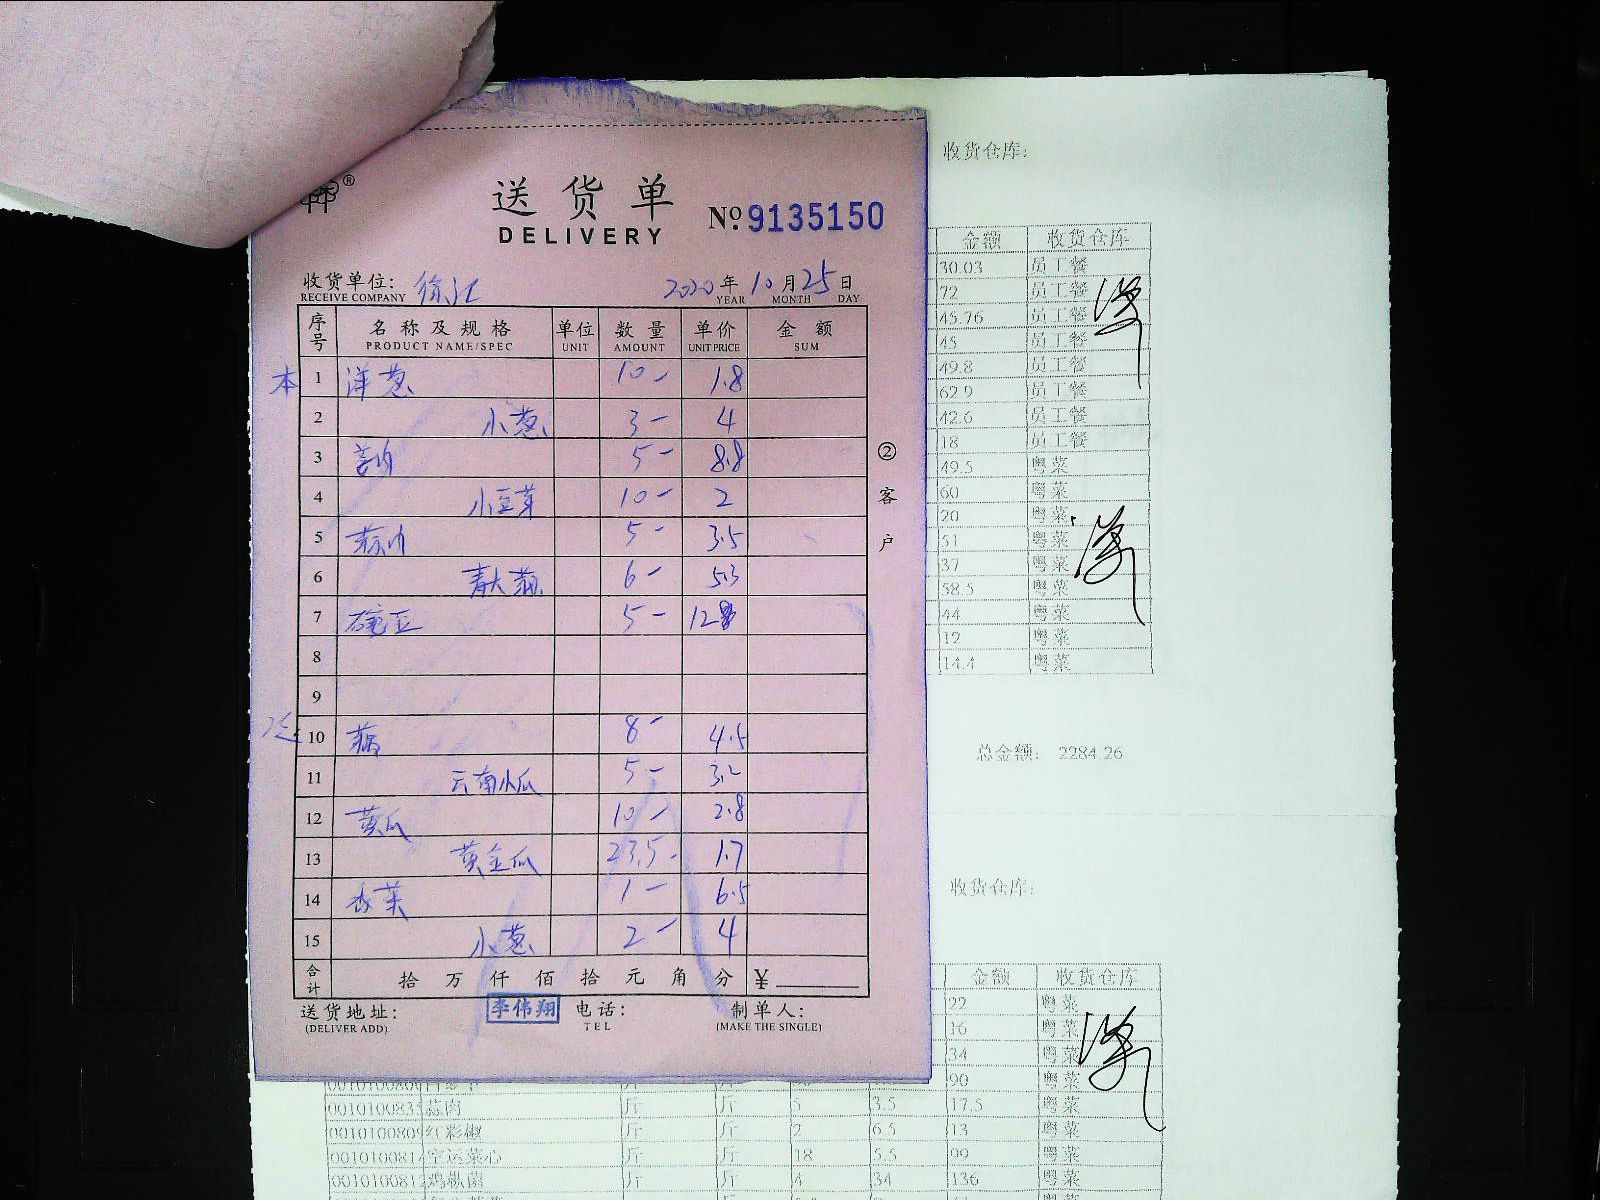 送货单
DELIVERY
№ 9135150
收货单位: 徐汇 2020年10月25日
RECEIVE COMPANY YEAR MONTH DAY
序号 名称及规格 单位 数量 单价 金额
PRODUCT NAME/SPEC UNIT AMOUNT UNIT PRICE SUM
本 1 洋葱 10- 1.8
2 小葱 3- 4
3 5- 8.8
4 小豆芽 10- 2
5 蒜肉 5- 3.5
6 青大 6- 5.3
7 豌豆 5- 12
8
9
10 8- 4.5
11 云南小瓜 5- 3.2
12 黄瓜 10- 2.8
13 黄金瓜 23.5- 1.7
14 香菜 1- 6.5
15 小葱 2- 4
合计 拾万仟佰拾元角分 ¥
送货地址: 李伟翔 电话: 制单人:
(DELIVER ADD) TEL (MAKE THE SINGLE)
②客户
收货仓库:
金额 收货仓库
30.03 员工餐
72 员工餐
45.76 员工餐
45 员工餐
49.8 员工餐
62.9 员工餐
42.6 员工餐
18 员工餐
49.5 粤菜
60 粤菜
20 粤菜
51 粤菜
37 粤菜
58.5 粤菜
44 粤菜
12 粤菜
14.4 粤菜
总金额: 2284.26
收货仓库:
金额 收货仓库
22 粤菜
16 粤菜
34 粤菜
90 粤菜
蒜肉 斤 斤 5 3.5 17.5 粤菜
红彩椒 斤 斤 2 6.5 13 粤菜
空运菜心 斤 斤 18 5.5 99 粤菜
鸡枞菌 斤 斤 4 34 136 粤菜